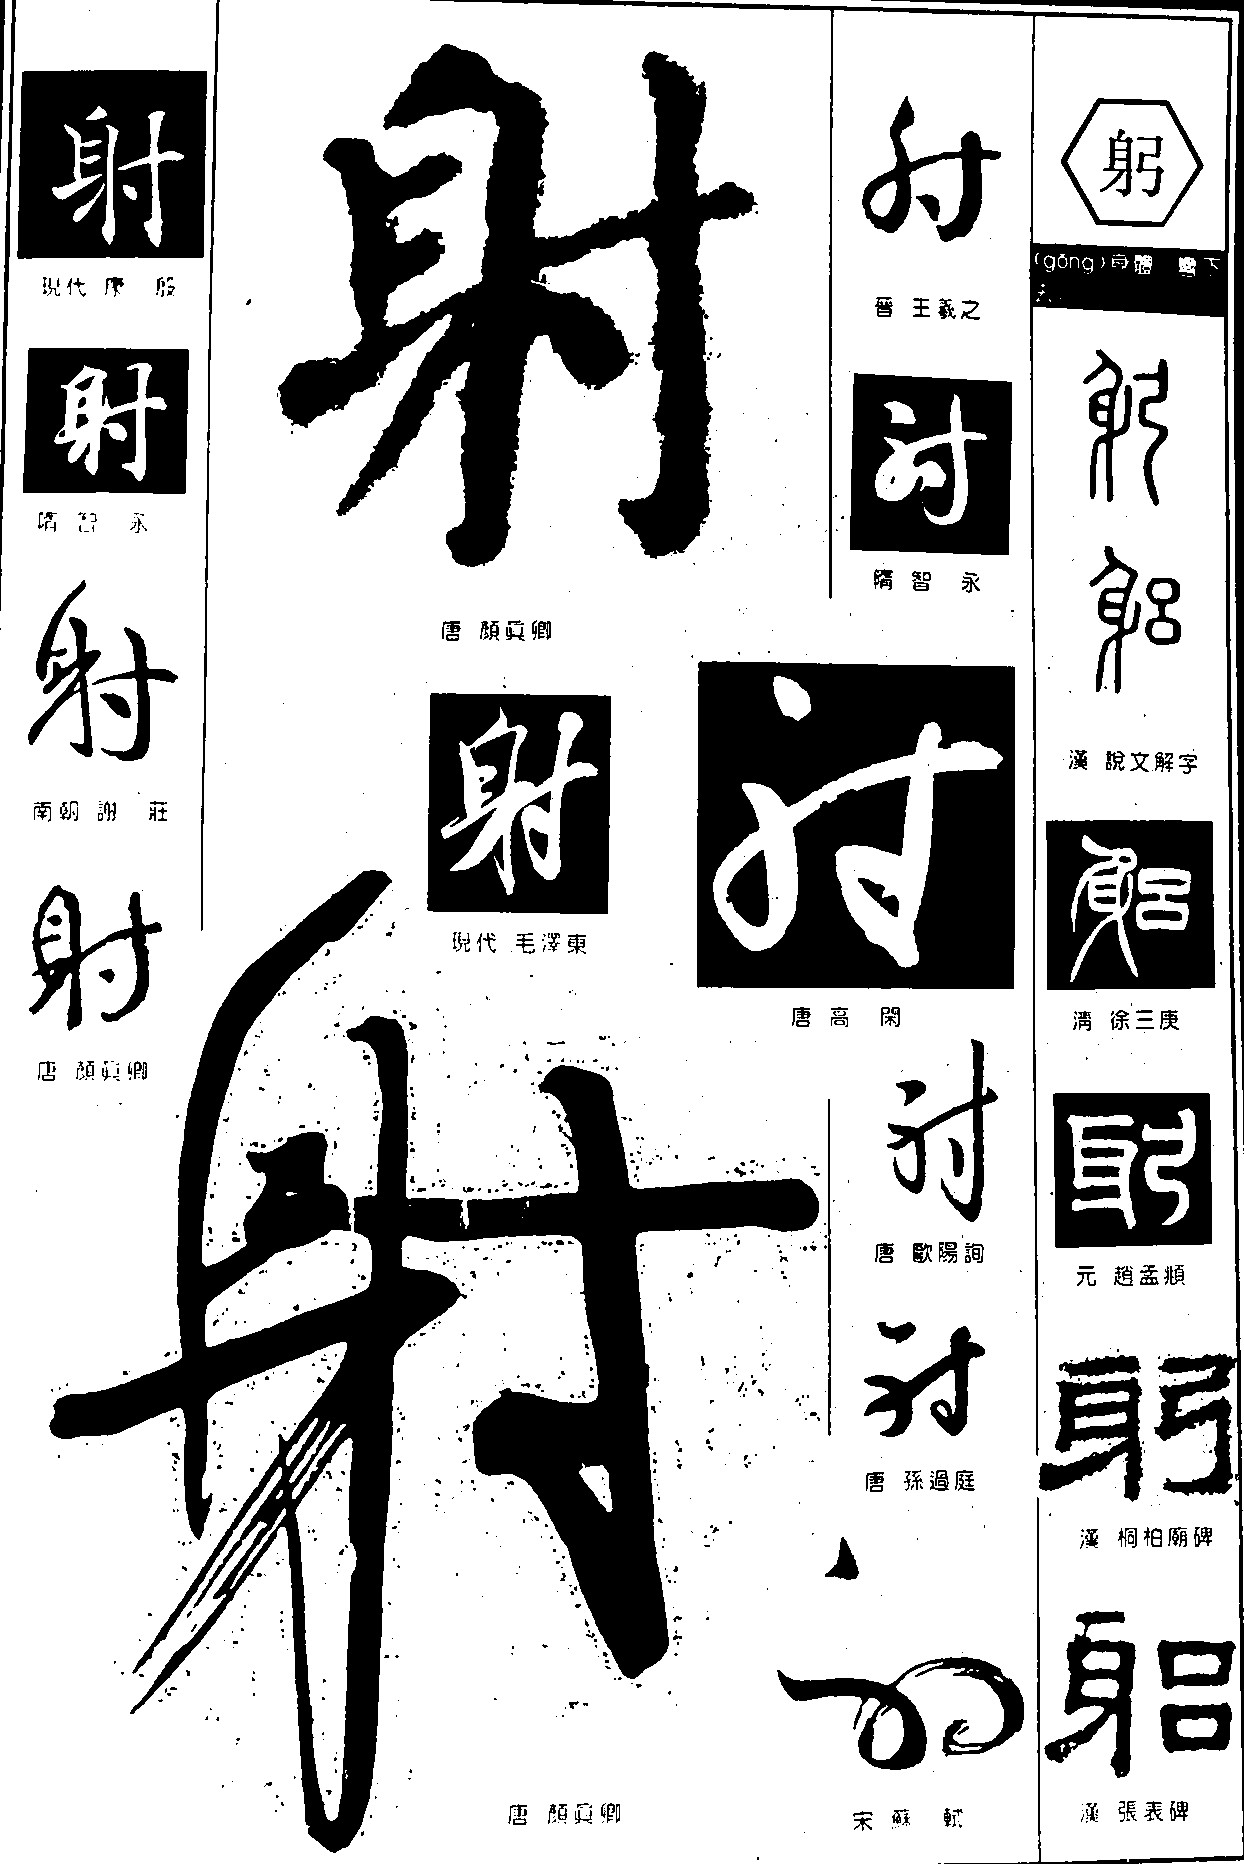 躬
(gōng)身體 彎下
躬
躬
漢 說文解字
躬
清 徐三庚
躬
元 趙孟頫
躬
漢 桐柏廟碑
躬
漢 張表碑
射
晉 王羲之
射
隋 智永
射
唐 高閑
射
唐 歐陽詢
射
唐 孫過庭
射
宋 蘇軾
射
唐 顏眞卿
射
現代 毛澤東
射
唐 顏眞卿
射
現代 康殷
射
隋 智永
射
南朝 謝莊
射
唐 顏眞卿